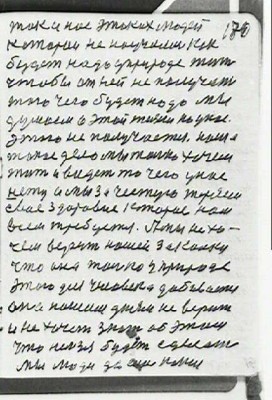 такие нас этаких людей 170
которой не научали как
будет надо природе жить
чтобы от ней не получать
того чего будет надо мы
думаем в этой жизни то у нас
этого не получается. наше
такое дело мы только хочем
жить и видет то чего у нас
нету и мы за честную теряем
свае здоровие которое нам
всем требуется. А мы не хо-
чем верит нашей закалки
что она только в природе
этого дня человека добивает
она нашем дням не верит
и не хочет знат об этом
что нельзя будет сделат
мы люди